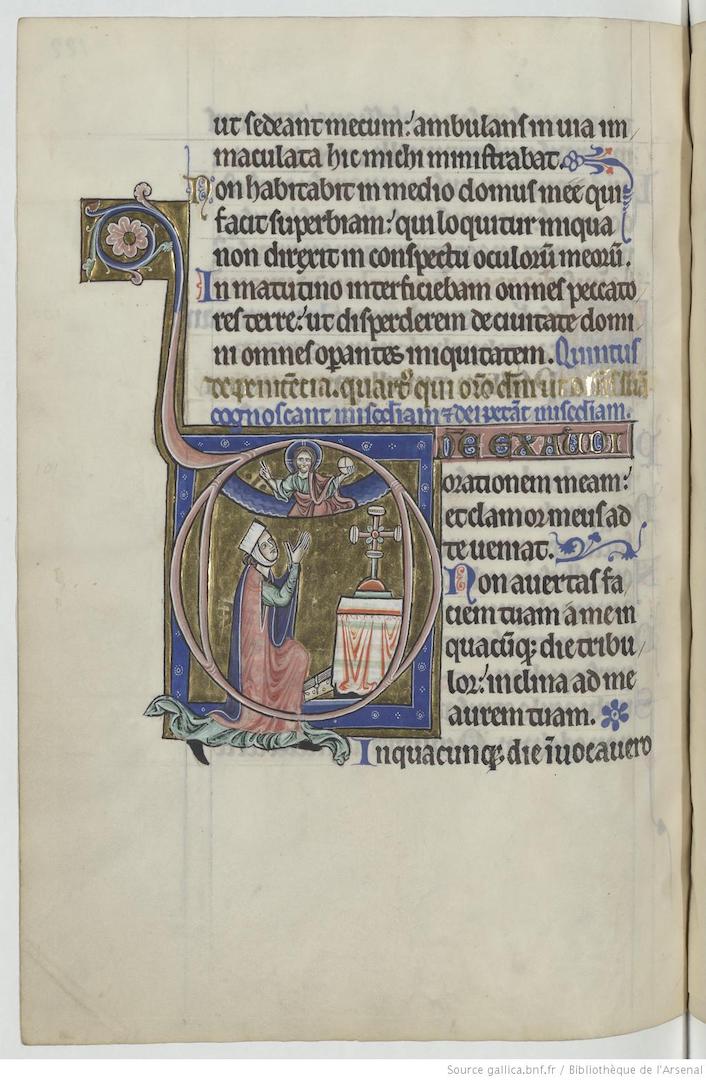 ut sedeant mecum: ambulans in uia im
maculata hic michi ministrabat.
Non habitabit in medio domus mee qui
facit superbiam: qui loquitur iniqua
non direxit in conspectu oculorū meorū.
In matutino interficiebam omnes peccato
res terre: ut disperderem de ciuitate domi
ni omnes operantes iniquitatem. Quintus
de penitētia. quart9 qui orō dm̄ ut
cognoscant misc̄diam & dei petāt misc̄diam.
DNE EXAUDI
orationem meam:
et clamor meus ad
te ueniat.
Non auertas fa
ciem tuam a me in
quacūq; die tribu
lor: inclina ad me
aurem tuam.
In quacunq; die īuocauero
Source gallica.bnf.fr / Bibliothèque de l'Arsenal